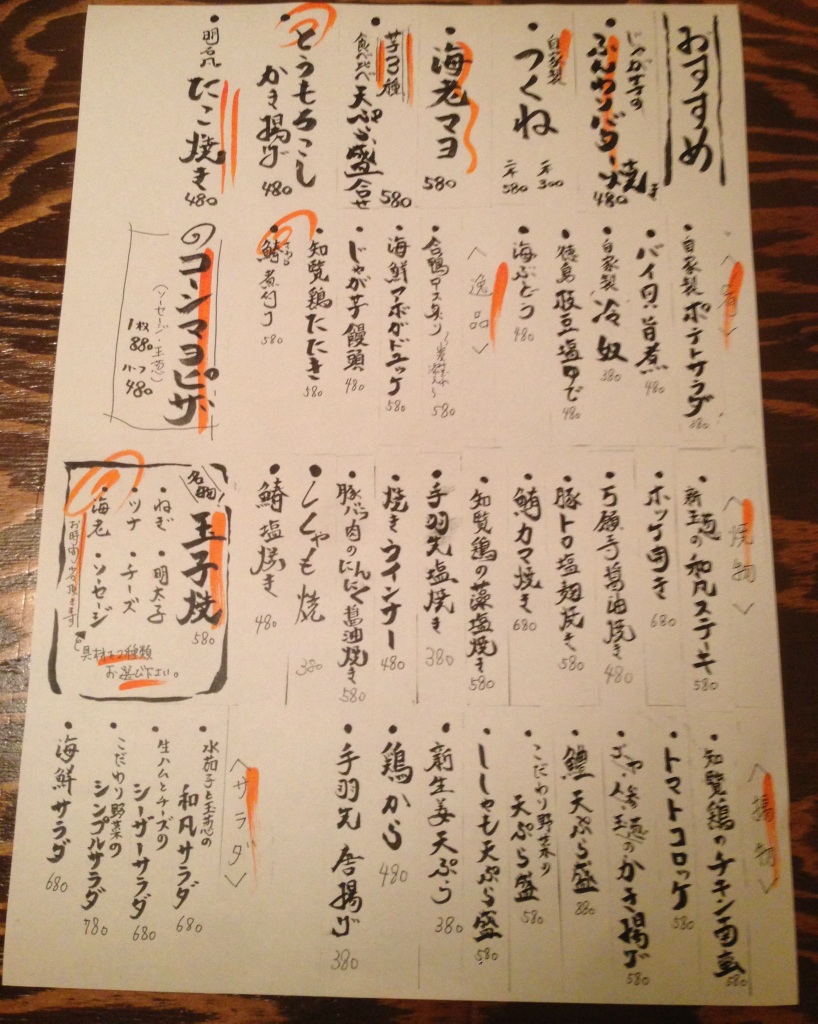 おすすめ
じゃが芋の
ふんわりバター焼き
480
自家製
つくね
一本 300
二本 580
海老マヨ
580
芋3種
食べ比べ 天ぷら盛合せ
580
とうもろこし
かき揚げ
480
明石風 たこ焼き
480
自家製 ポテトサラダ
580
バイ貝旨煮
480
自家製 冷奴
380
徳島 枝豆塩ゆで
480
海ぶどう
480
〈逸品〉
合鴨ロース炙り
580
海鮮アボガドユッケ
580
じゃが芋饅頭
480
知覧鶏たたき
580
鰆煮付け
580
コーンマヨピザ
(ソーセージ・玉葱)
1枚 880
ハーフ 480
〈焼物〉
新玉葱の和風ステーキ
580
ホッケ開き
680
万願寺醤油焼き
480
豚トロ塩麹焼き
580
鮪カマ焼き
680
知覧鶏の藻塩焼き
580
手羽先塩焼き
380
焼きウインナー
480
豚バラ肉のにんにく醤油焼き
580
ししゃも焼
380
鰆塩焼き
480
名物!
玉子焼
580
・ねぎ ・明太子
・ツナ ・チーズ
・海老 ・ソーセージ
お時間少々頂きます
具材を2種類
お選び下さい。
〈揚物〉
知覧鶏のチキン南蛮
580
トマトコロッケ
580
かき揚げ
580
鱧天ぷら盛
880
こだわり野菜の
天ぷら盛
580
ししゃも天ぷら盛
580
新生姜天ぷら
380
鶏から
480
手羽先 唐揚げ
380
〈サラダ〉
水茄子と玉葱の
和風サラダ
680
生ハムとチーズの
シーザーサラダ
680
こだわり野菜の
シンプルサラダ
780
海鮮サラダ
680